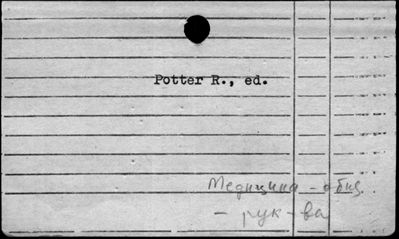 Potter R., ed.
Медицина - общ.
- рук-ва